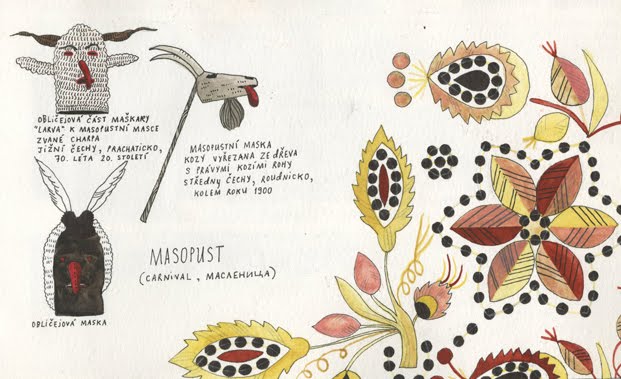 OBLIČEJOVÁ ČÁST MAŠKARY
"LARVA" K MASOPUSTNÍ MASCE
ZVANÉ CHARPA
JIŽNÍ ČECHY, PRACHATICKO,
70. LÉTA 20. STOLETÍ
MASOPUSTNÍ MASKA
KOZY VYŘEZANÁ ZE DŘEVA
S PRAVÝMI KOZÍMI ROHY
STŘEDNY ČECHY, ROUDNICKO,
KOLEM ROKU 1900
MASOPUST
(CARNIVAL, МАСЛЕНИЦА)
OBLIČEJOVÁ MASKA